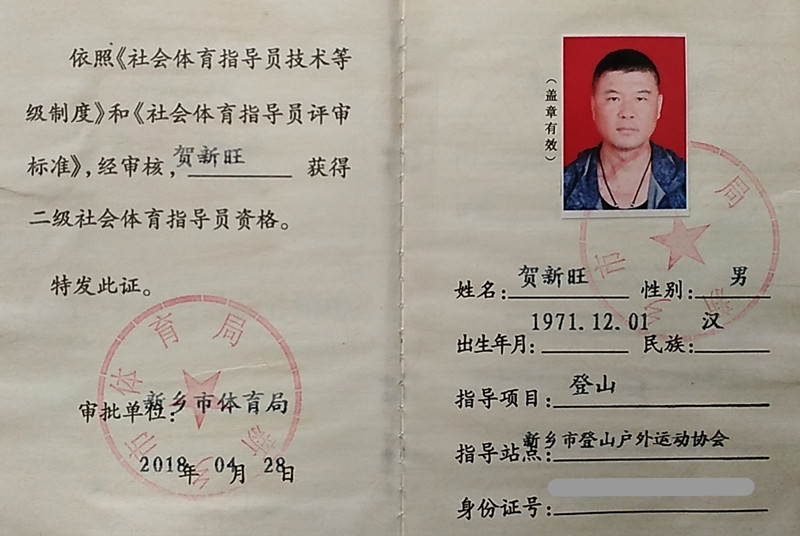 依照《社会体育指导员技术等
级制度》和《社会体育指导员评审
标准》,经审核,贺新旺 获得
二级社会体育指导员资格。
特发此证。
审批单位:新乡市体育局
2018年 04月 28日
新乡市体育局
(盖章有效)
姓名:贺新旺 性别:男
出生年月:1971.12.01 民族:汉
指导项目:登山
指导站点:新乡市登山户外运动协会
身份证号: